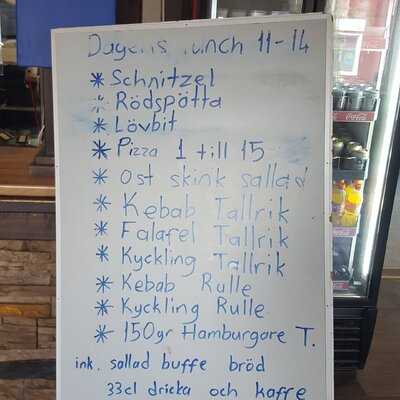 Dagens lunch 11-14
* Schnitzel
* Rödspötta
* Lövbit
* Pizza 1 till 15
* Ost skink sallad
* Kebab Tallrik
* Falafel Tallrik
* Kyckling Tallrik
* Kebab Rulle
* Kyckling Rulle
* 150gr Hamburgare T.
ink. sallad buffe bröd
33cl dricka och kaffe